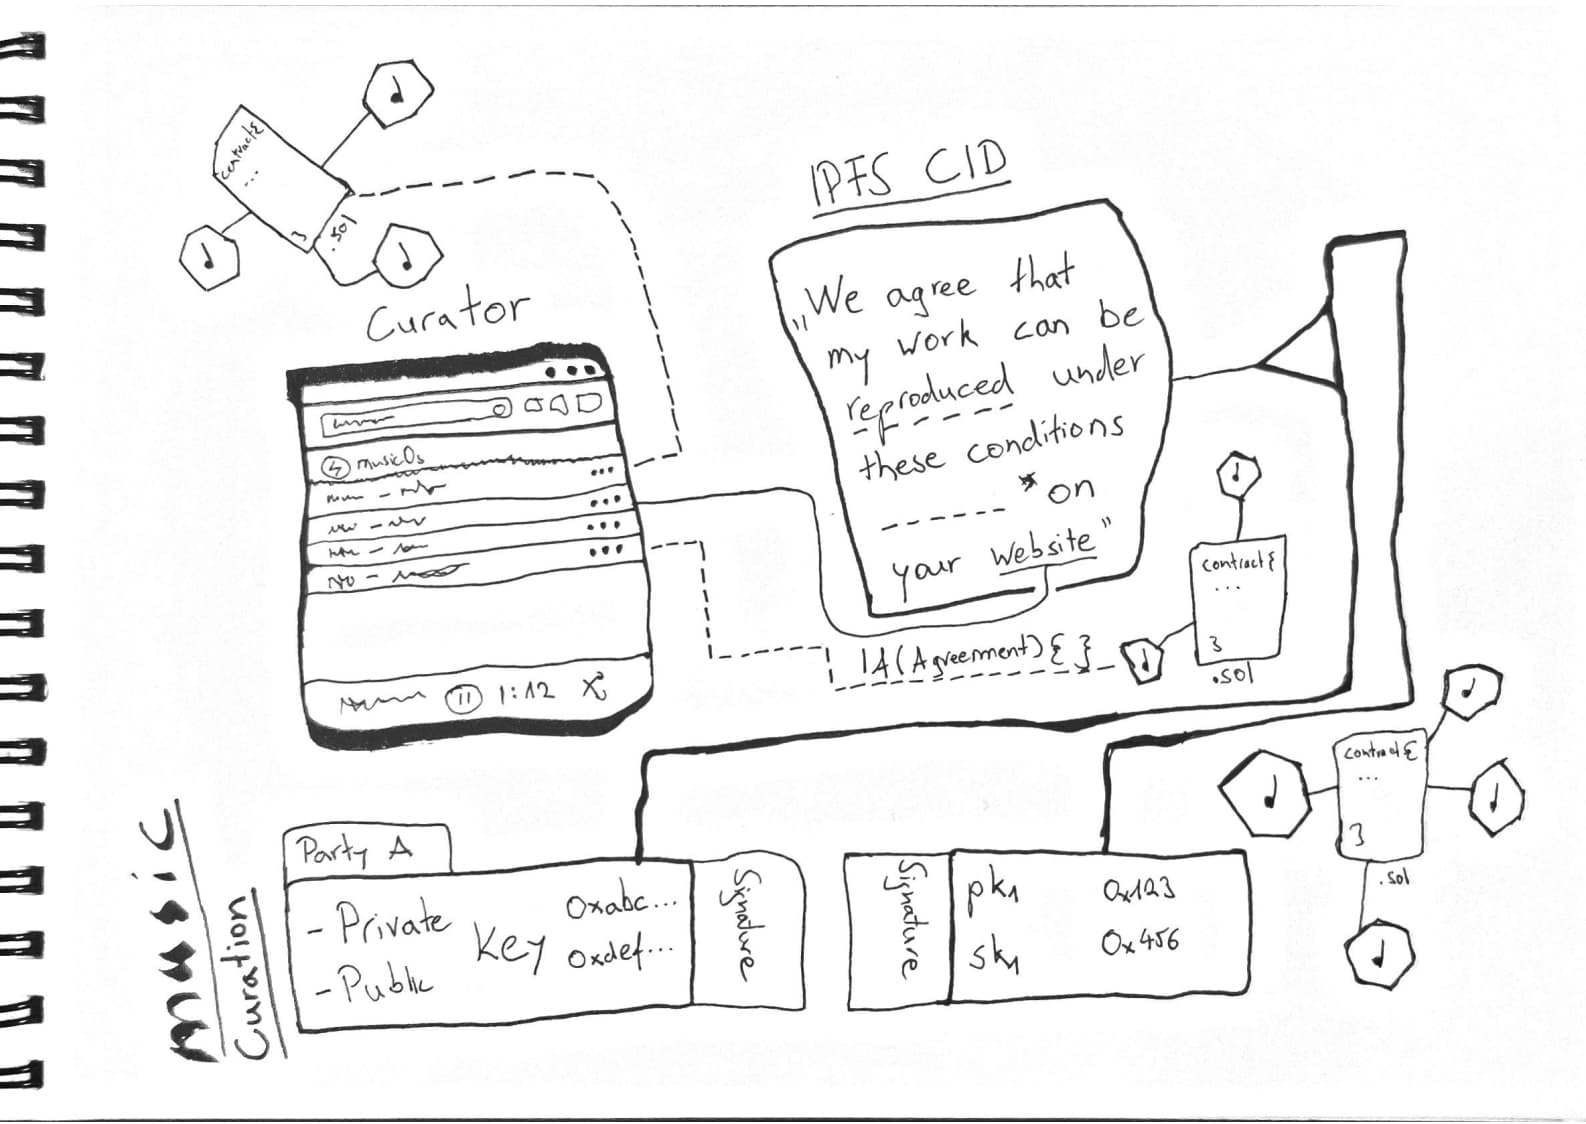 contract{
...
}
.sol
Curator
musicOs
1:12
IPFS CID
„We agree that
my work can be
reproduced under
these conditions
* on
your website"
IA(Agreement){ }
contract{
...
}
.sol
contract{
...
}
.sol
Party A
- Private
- Public
Key
0xabc...
0xdef...
Signature
Signature
pk1
0x123
sk1
0x456
music
Curation